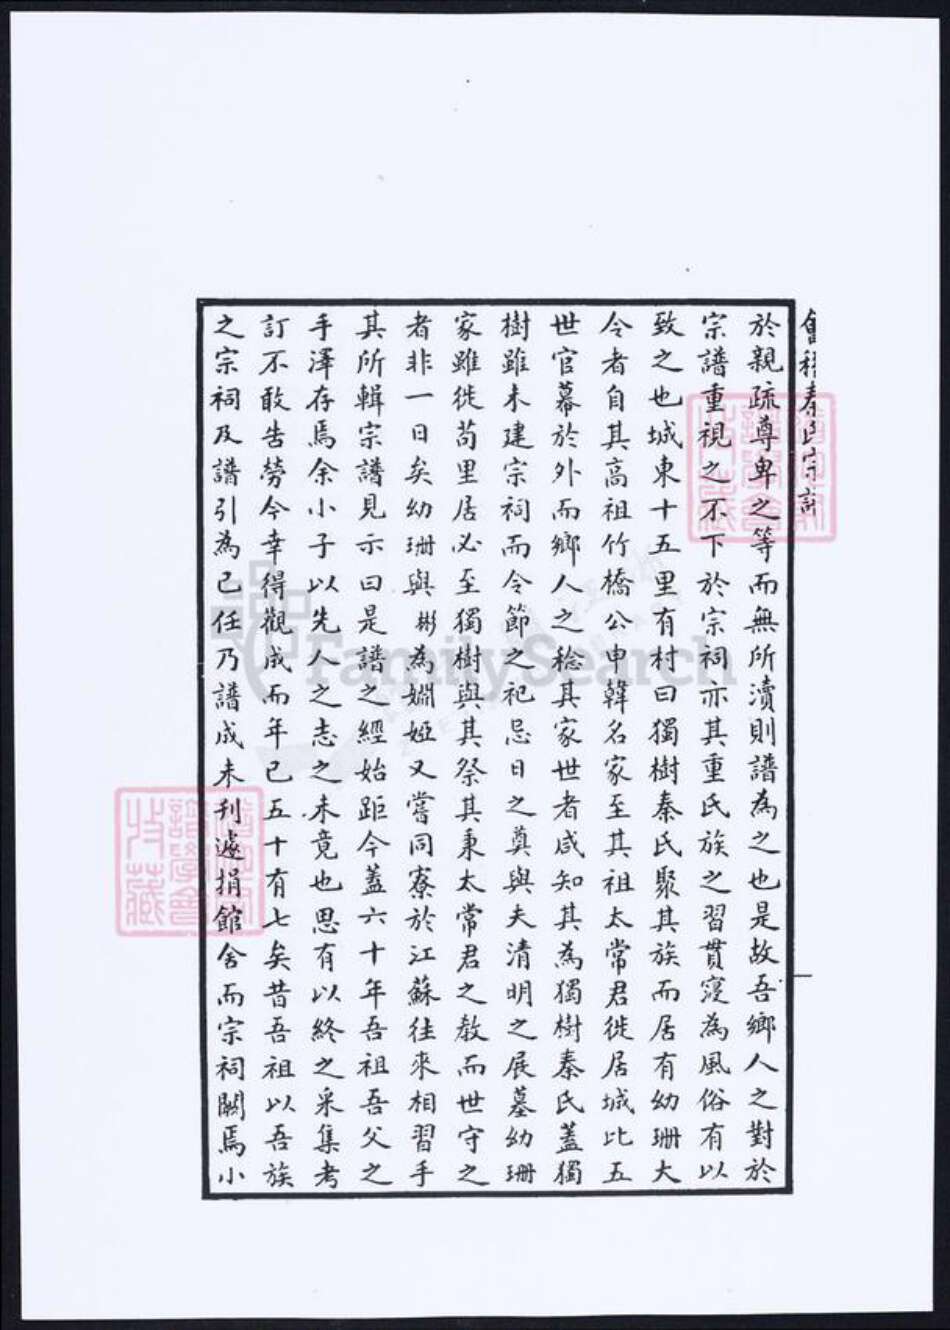 會稽秦氏宗譜
於親疏尊卑之等而無所瀆則譜為之也是故吾鄉人之對於
宗譜重視之不下於宗祠亦其重氏族之習貫寖為風俗有以
致之也城東十五里有村曰獨樹秦氏聚其族而居有幼珊大
令者自其高祖竹橋公申韓名家至其祖太常君徙居城比五
世官幕於外而鄉人之稔其家世者咸知其為獨樹秦氏蓋獨
樹雖未建宗祠而令節之祀忌日之奠與夫清明之展墓幼珊
家雖徙茍里居必至獨樹與其祭其秉太常君之教而世守之
者非一日矣幼珊與彬為婣婭又嘗同寮於江蘇往來相習手
其所輯宗譜見示曰是譜之經始距今蓋六十年吾祖吾父之
手澤存焉余小子以先人之志之未竟也思有以終之采集考
訂不敢告勞今幸得觀成而年已五十有七矣昔吾祖以吾族
之宗祠及譜引為己任乃譜成未刊遽捐館舍而宗祠闕焉小
FamilySearch